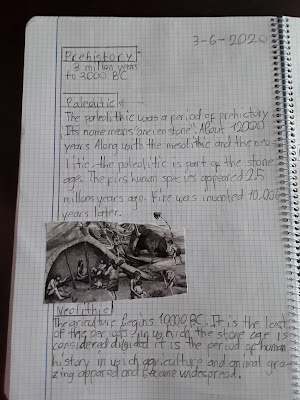 3-6-2020
Prehistory
3 million years
to 3000 BC
Paleolitic
The paleolithic was a period of prehictory
Its name means "ancien stone". About 12000
years Along with the mesolithic and the neo-
litic, the paleolitic is part of the stone
age. The firs human species appeared 2.5
millons years ago. Fire was invented 10.000
years later.
Neolithic
The agriculture begins 10000 BC. It is the last
of this periods in which the stone age is
considered divided it is the period of human
history in wich agriculture and animal gra-
zing appared and became widespread.